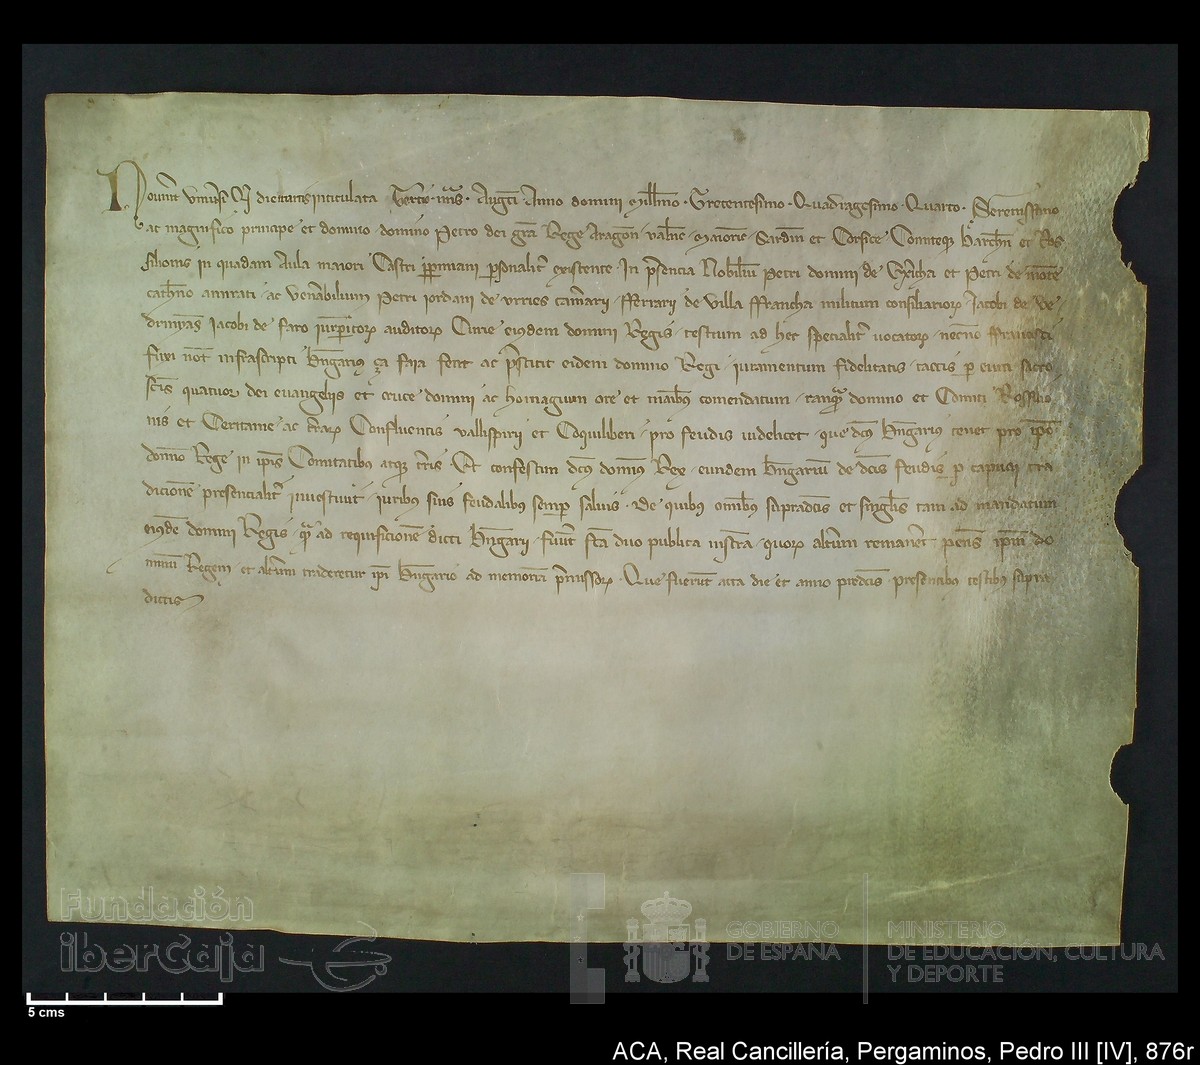 Noverint universi Quod die martis intitulata Tercio nonas Augusti Anno domini Millesimo Trecentesimo Quadragesimo Quarto Serenissimo
ac magnifico principe et domino domino Petro dei gracia Rege Aragon Valencie Maiorice Sardinie et Corsice Comiteque Barchinone et Ros
silionis in quadam Aula maiori Castri perpiniani personaliter existente In presencia Nobilium Petri domini de et Petri de monte
catheno amirati ac venerabilium Petri iordani de urries camerarii fferrarii de villa ffrancha militum consiliariorum Iacobi de
Iacobi de faro iurisperitorum auditorum Curie eiusdem domini Regis testium ad hec specialiter vocatorum necnon ffrancisci
fuxi notarii infrascripti fecit ac prestitit eidem domino Regi iuramentum fidelitatis tactis per eum sacro
sanctis quatuor dei evangeliis et cruce domini ac homagium ore et manibus comendatum tanquam domino et Comiti Rossilio
nis et Ceritanie ac terrarum Confluentis vallispirii et Coquiliberi pro feudis videlicet que dictus tenet pro ipso
domino Rege in ipsis Comitatibus atque terris Et confestim dictus dominus Rex eundem de dictis feudis per capucii tra
dicionem presencialiter investivit iuribus suis feudalibus semper salvis De quibus omnibus supradictis et singulis tam ad mandatum
eiusdem domini Regis quam ad requisicionem dicti fuerunt facta duo publica instrumenta quorum alterum remaneret penes ipsum do
minum Regem et alterum traderetur ipsi ad memoriam premissorum Que fuerunt acta die et anno predictis presentibus testibus supra
dictis
Fundación
iberCaja
GOBIERNO
DE ESPAÑA
MINISTERIO
DE EDUCACIÓN, CULTURA
Y DEPORTE
5 cms
ACA, Real Cancillería, Pergaminos, Pedro III [IV], 876r